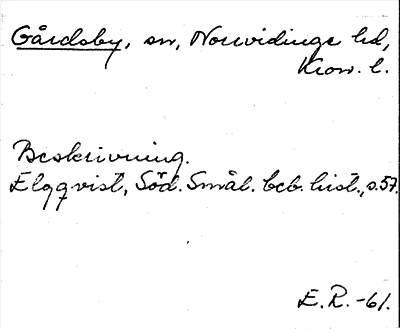 Gårdsby, sn, Norvidinge hd,
Kron. l.
Beskrivning.
Elgqvist, Söd. Smål. beb. hist., s. 57.
E. R. -61.